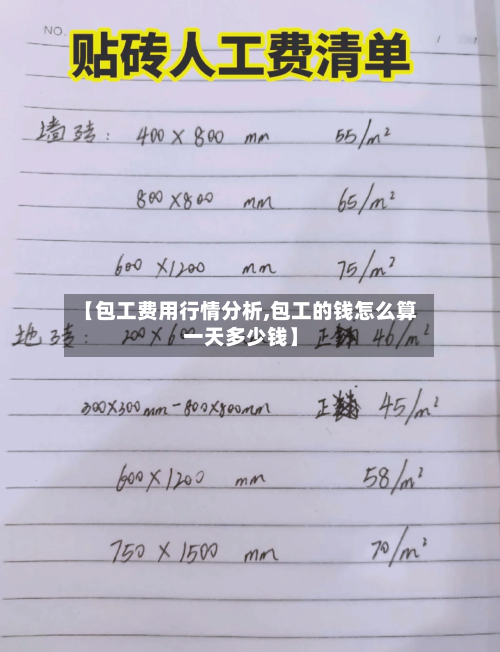 NO.
贴砖人工费清单
墙砖: 400×800 mm 55/m²
800×800 mm 65/m²
600×1200 mm 75/m²
【包工费用行情分析,包工的钱怎么算
一天多少钱】
地砖: 200×600 正铺 46/m²
300×300mm-800×800mm 正铺 45/m²
600×1200 mm 58/m²
750×1500 mm 70/m²